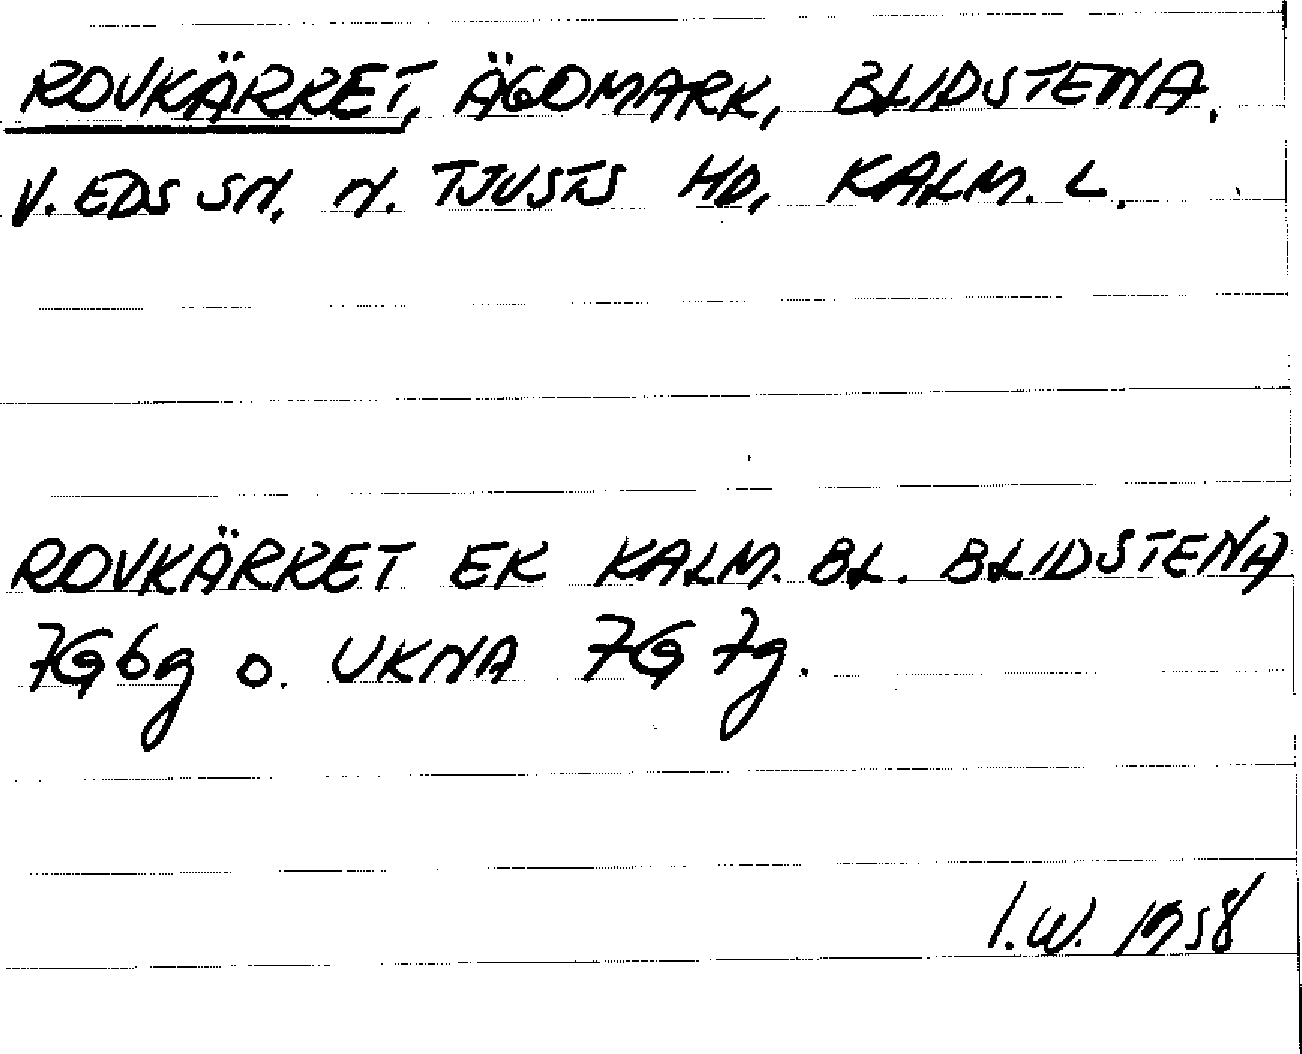 ROVKÄRRET, ÄGOMARK, BLIDSTENA,
V. EDS SN, N. TJUSTS HD, KALM. L.
ROVKÄRRET EK KALM. BL. BLIDSTENA
7G6g o. UKNA 7G7g.
I.W. 1958